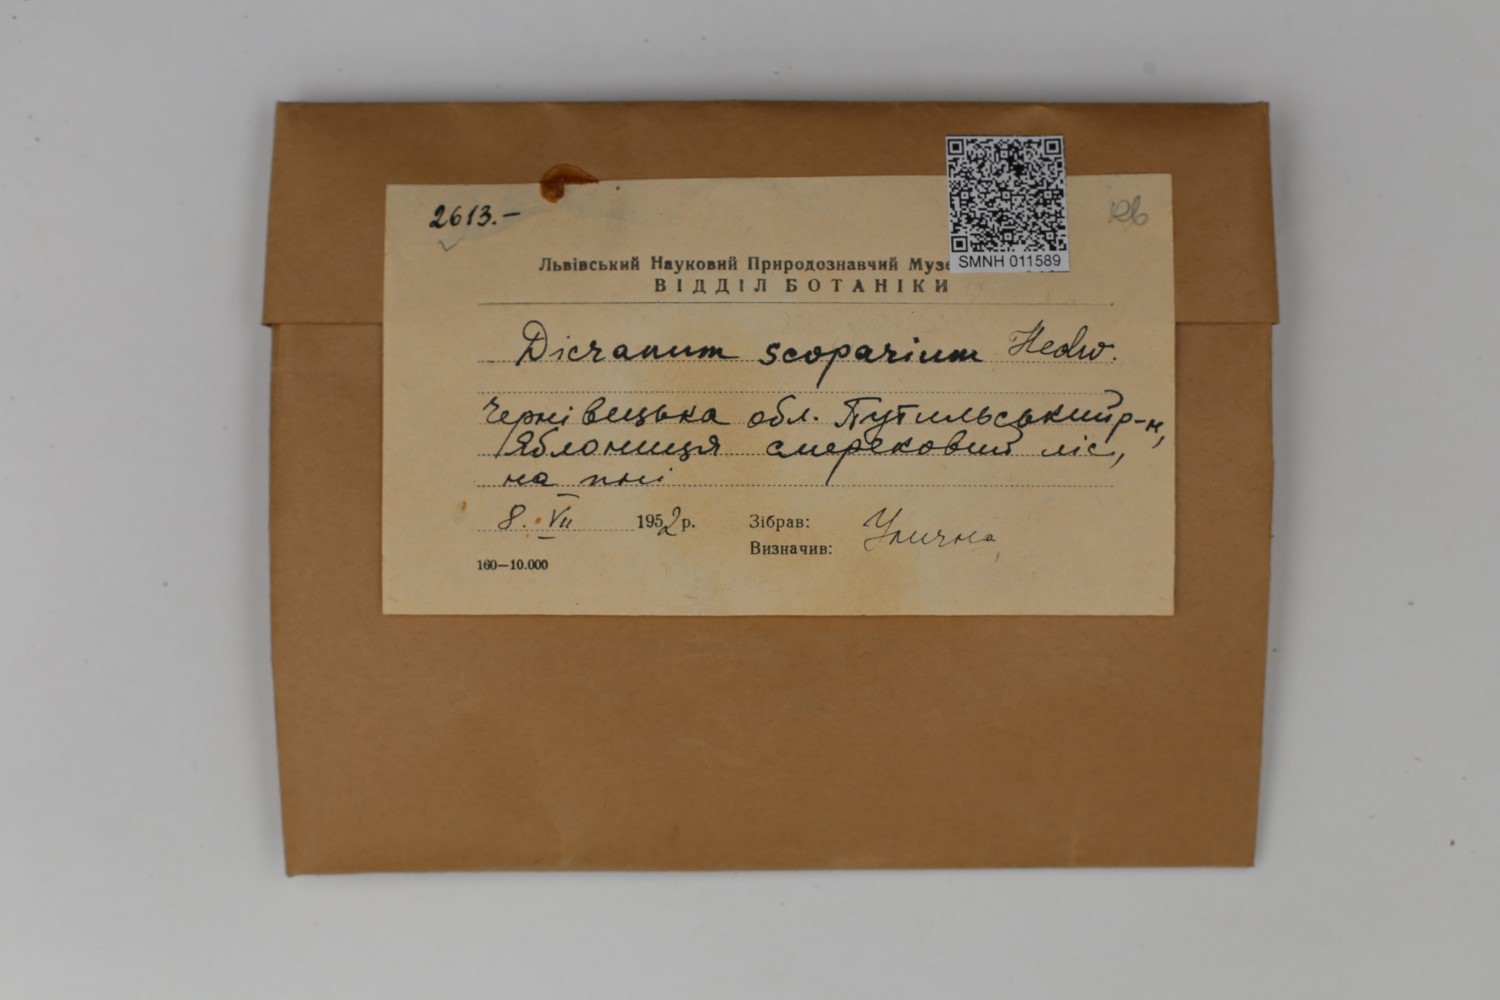 2613.–
SMNH 011589
Львівський Науковий Природознавчий Музе
ВІДДІЛ БОТАНІКИ
Dicranum scoparium Hedw.
Чернівецька обл. Путильський р-н,
Яблониця смерековий ліс,
на пні
8. VII 1952 р. Зібрав: Улична
Визначив:
160—10.000